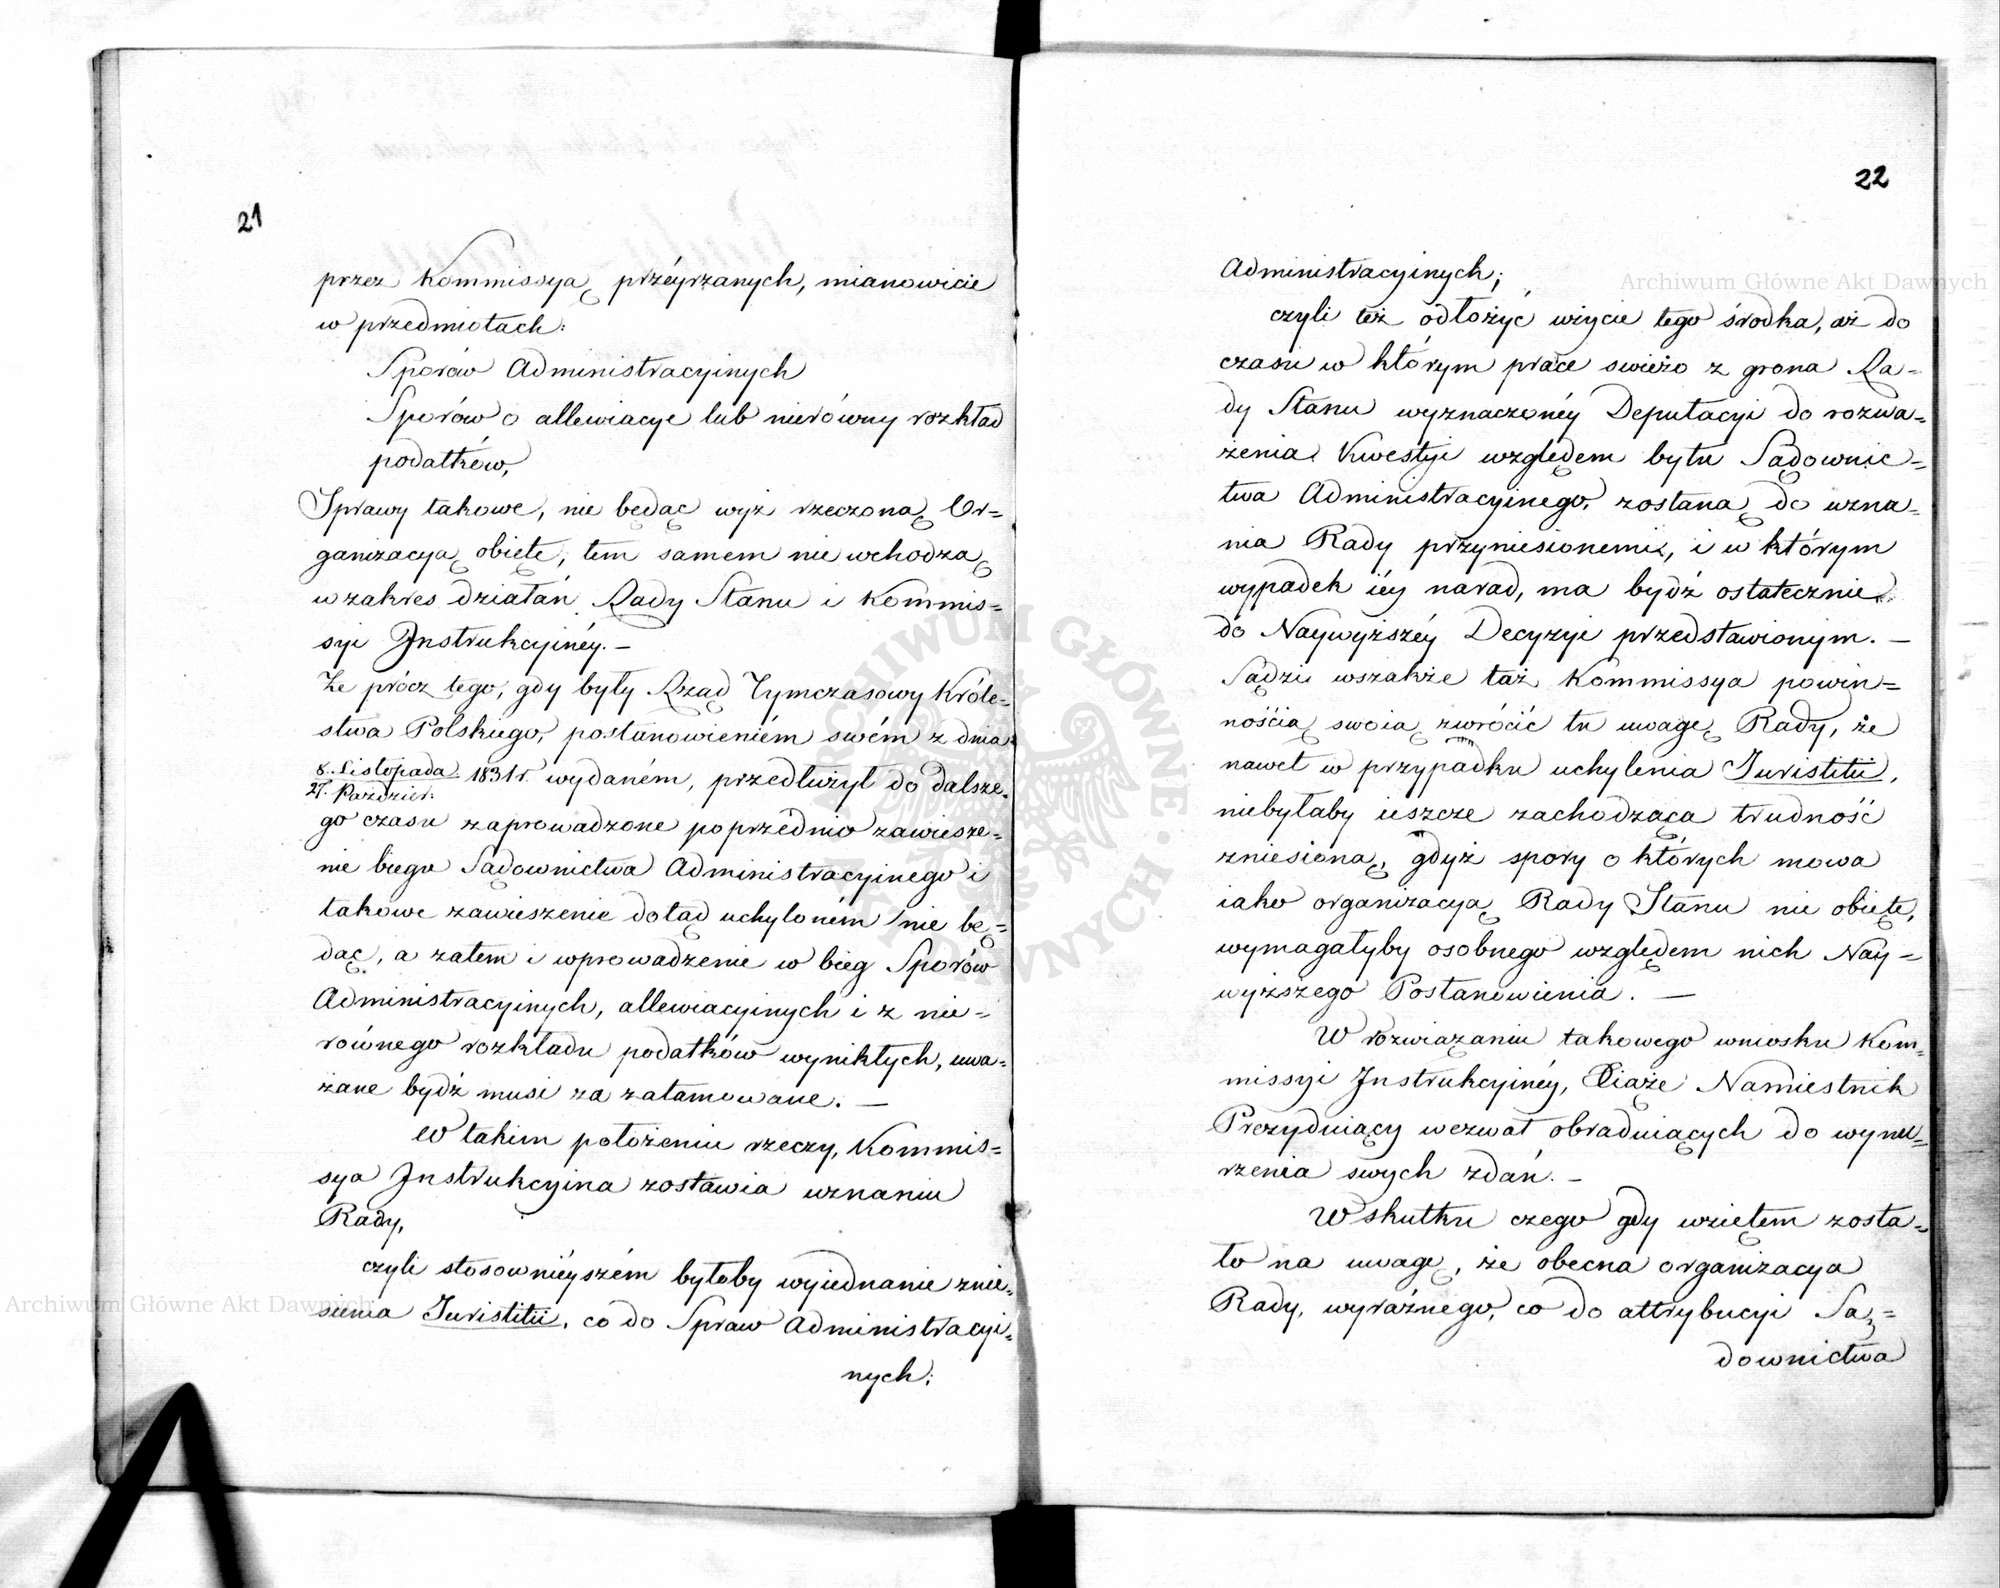 21
przez Kommissyą przéyrzanych, mianowicie
w przedmiotach:
Sporów Administracyinych
Sporów o allewiacye lub nierówny rozkład
podatków,
Sprawy takowe, nie będąc wyż rzeczoną Or=
ganizacyą obięte, tem samem nie wchodzą
w zakres działań Rady Stanu i Kommis=
syi Instrukcyinéy. –
Że prócz tego, gdy były Rząd Tymczasowy Króle=
stwa Polskiego, postanowieniém swém z dnia
8. Listopada 1831 r. wydaném, przedłużył do dalsze=
27. Paździer:
go czasu zaprowadzone poprzednio zawiesze=
nie biegu Sądownictwa Administracyinego i
takowe zawieszenie dotąd uchyloném nie bę=
dąc, a zatem i wprowadzenie w bieg Sporów
Administracyinych, allewiacyinych i z nie=
równego rozkładu podatków wynikłych, uwa=
żane bydź musi za zatamowane. —
W takim położeniu rzeczy, Kommis=
sya Instrukcyina zostawia uznaniu
Rady,
czyli stosownieyszém byłoby wyiednanie znie=
sienia Juristitii, co do Spraw Administracyi=
nych;
22
Administracyinych;
czyli też odłożyć użycie tego środka, aż do
czasu w którym prace swieżo z grona Ra=
dy Stanu wyznaczonéy Deputacyi do rozwa=
żenia Kwestyi względem bytu Sądownic=
twa Administracyinego, zostaną do uzna=
nia Rady przyniesionemi, i w którym
wypadek iéy narad, ma bydź ostatecznie
do Naywyższéy Decyzyi przedstawionym. —
Sądzi wszakże taż Kommissya powin=
nością swoią zwrócić tu uwagę Rady, że
nawet w przypadku uchylenia Juristitii,
niebyłaby ieszcze zachodząca trudność
zniesioną, gdyż spory o których mowa
iako organizacyą Rady Stanu nie obięte,
wymagałyby osobnego względem nich Nay=
wyższego Postanowienia. —
W rozwiązaniu takowego wniosku Kom=
missyi Instrukcyinéy, Xiąże Namiestnik
Prezyduiący wezwał obraduiących do wynu=
rzenia swych zdań. –
W skutku czego gdy wziętem zosta=
ło na uwagę, że obecna organizacya
Rady, wyraźnego, co do attrybucyi Są=
downictwa
Archiwum Główne Akt Dawnych
Archiwum Główne Akt Dawnych
ARCHIWUM GŁÓWNE AKT DAWNYCH